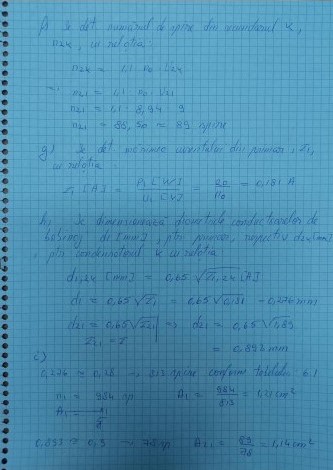 f) Se det. numărul de spire din secundarul k,
n2k, cu relația:
n2k = 1,1 · n0 · U2k
=> n21 = 1,1 · n0 · U21
n21 = 1,1 · 8,94 · 9
n21 = 88,50 ≈ 89 spire
g) Se det. mărimea curentului din primar, I1,
cu relația:
I1 [A] = P1 [W] / U1 [V] = 20 / 110 = 0,181 A
h) Se dimensionează diametrele conductoarelor de
bobinaj d1 [mm], ptr. primar, respectiv d2k [mm]
, ptr. cu relația
d1,2k [mm] = 0,65 √I1,2k [A]
d1 = 0,65 √I1 = 0,65 √0,181 = 0,276 mm
d21 = 0,65 √I21 | => d21 = 0,65 √1,89
I21 = I
= 0,893 mm
i)
0,276 ≈ 0,28 → 813 spire conform tabelului 6.1
n1 = 984 sp A1 = 984 / 813 = 1,21 cm²
0,893 ≈ 0,9 → 78 sp A21 = 89 / 78 = 1,14 cm²